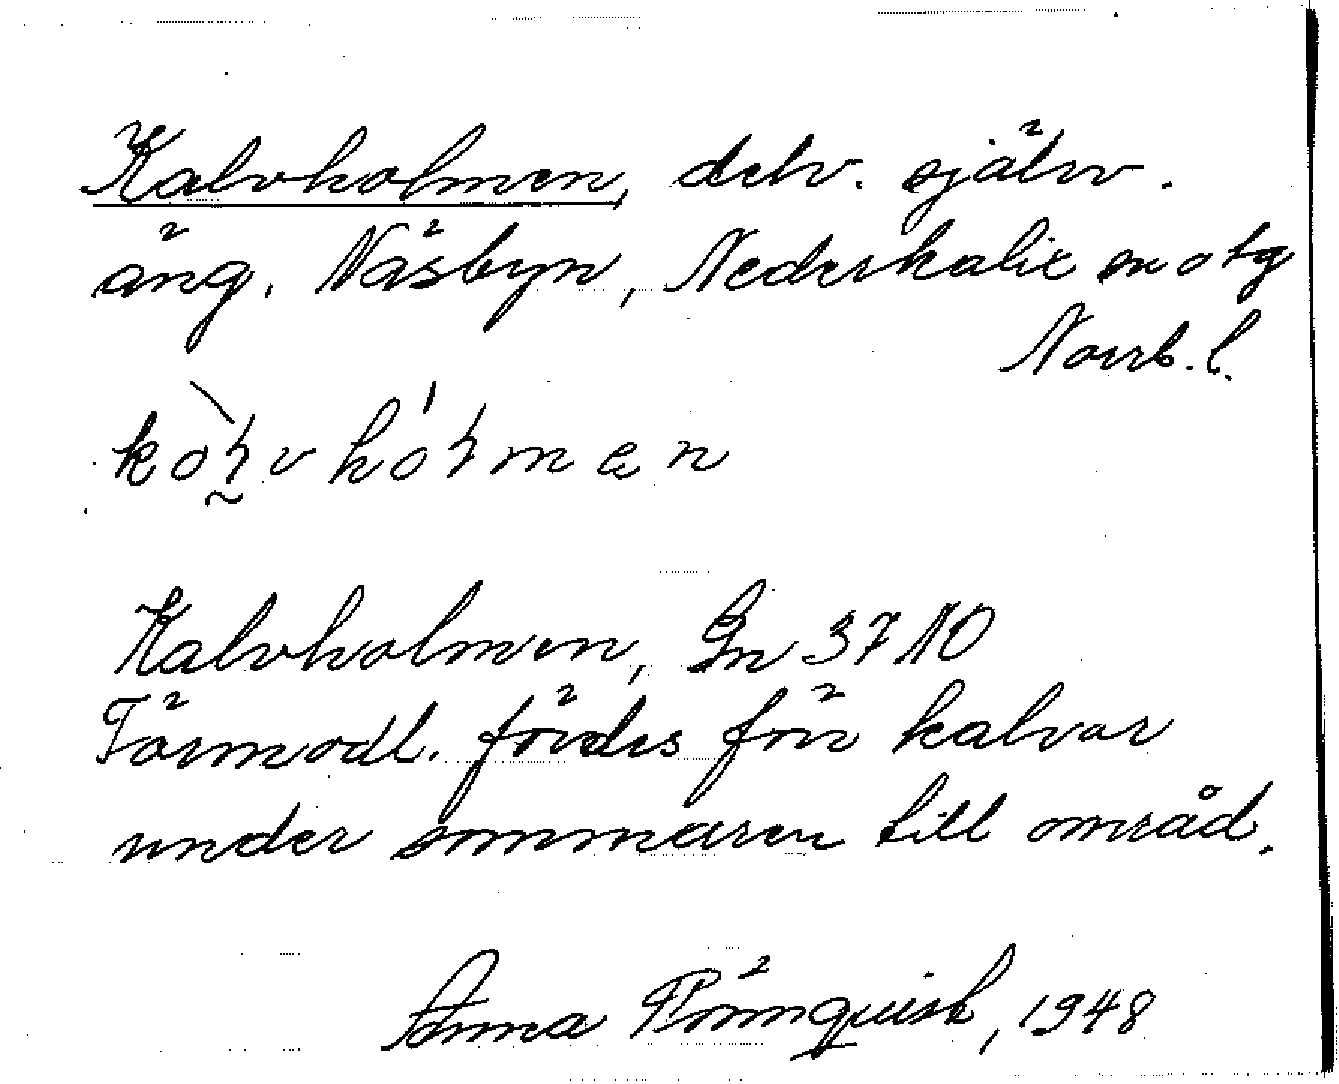 Kalvholmen, delv. självv.
äng. Näsbyn, Nederkalix sn o tg
Norrb. l.
kòļvhólmen
Kalvholmen, Gn 3710
Förmodl. fördes förr kalvar
under sommaren till område.
Anna Rönnquist, 1948